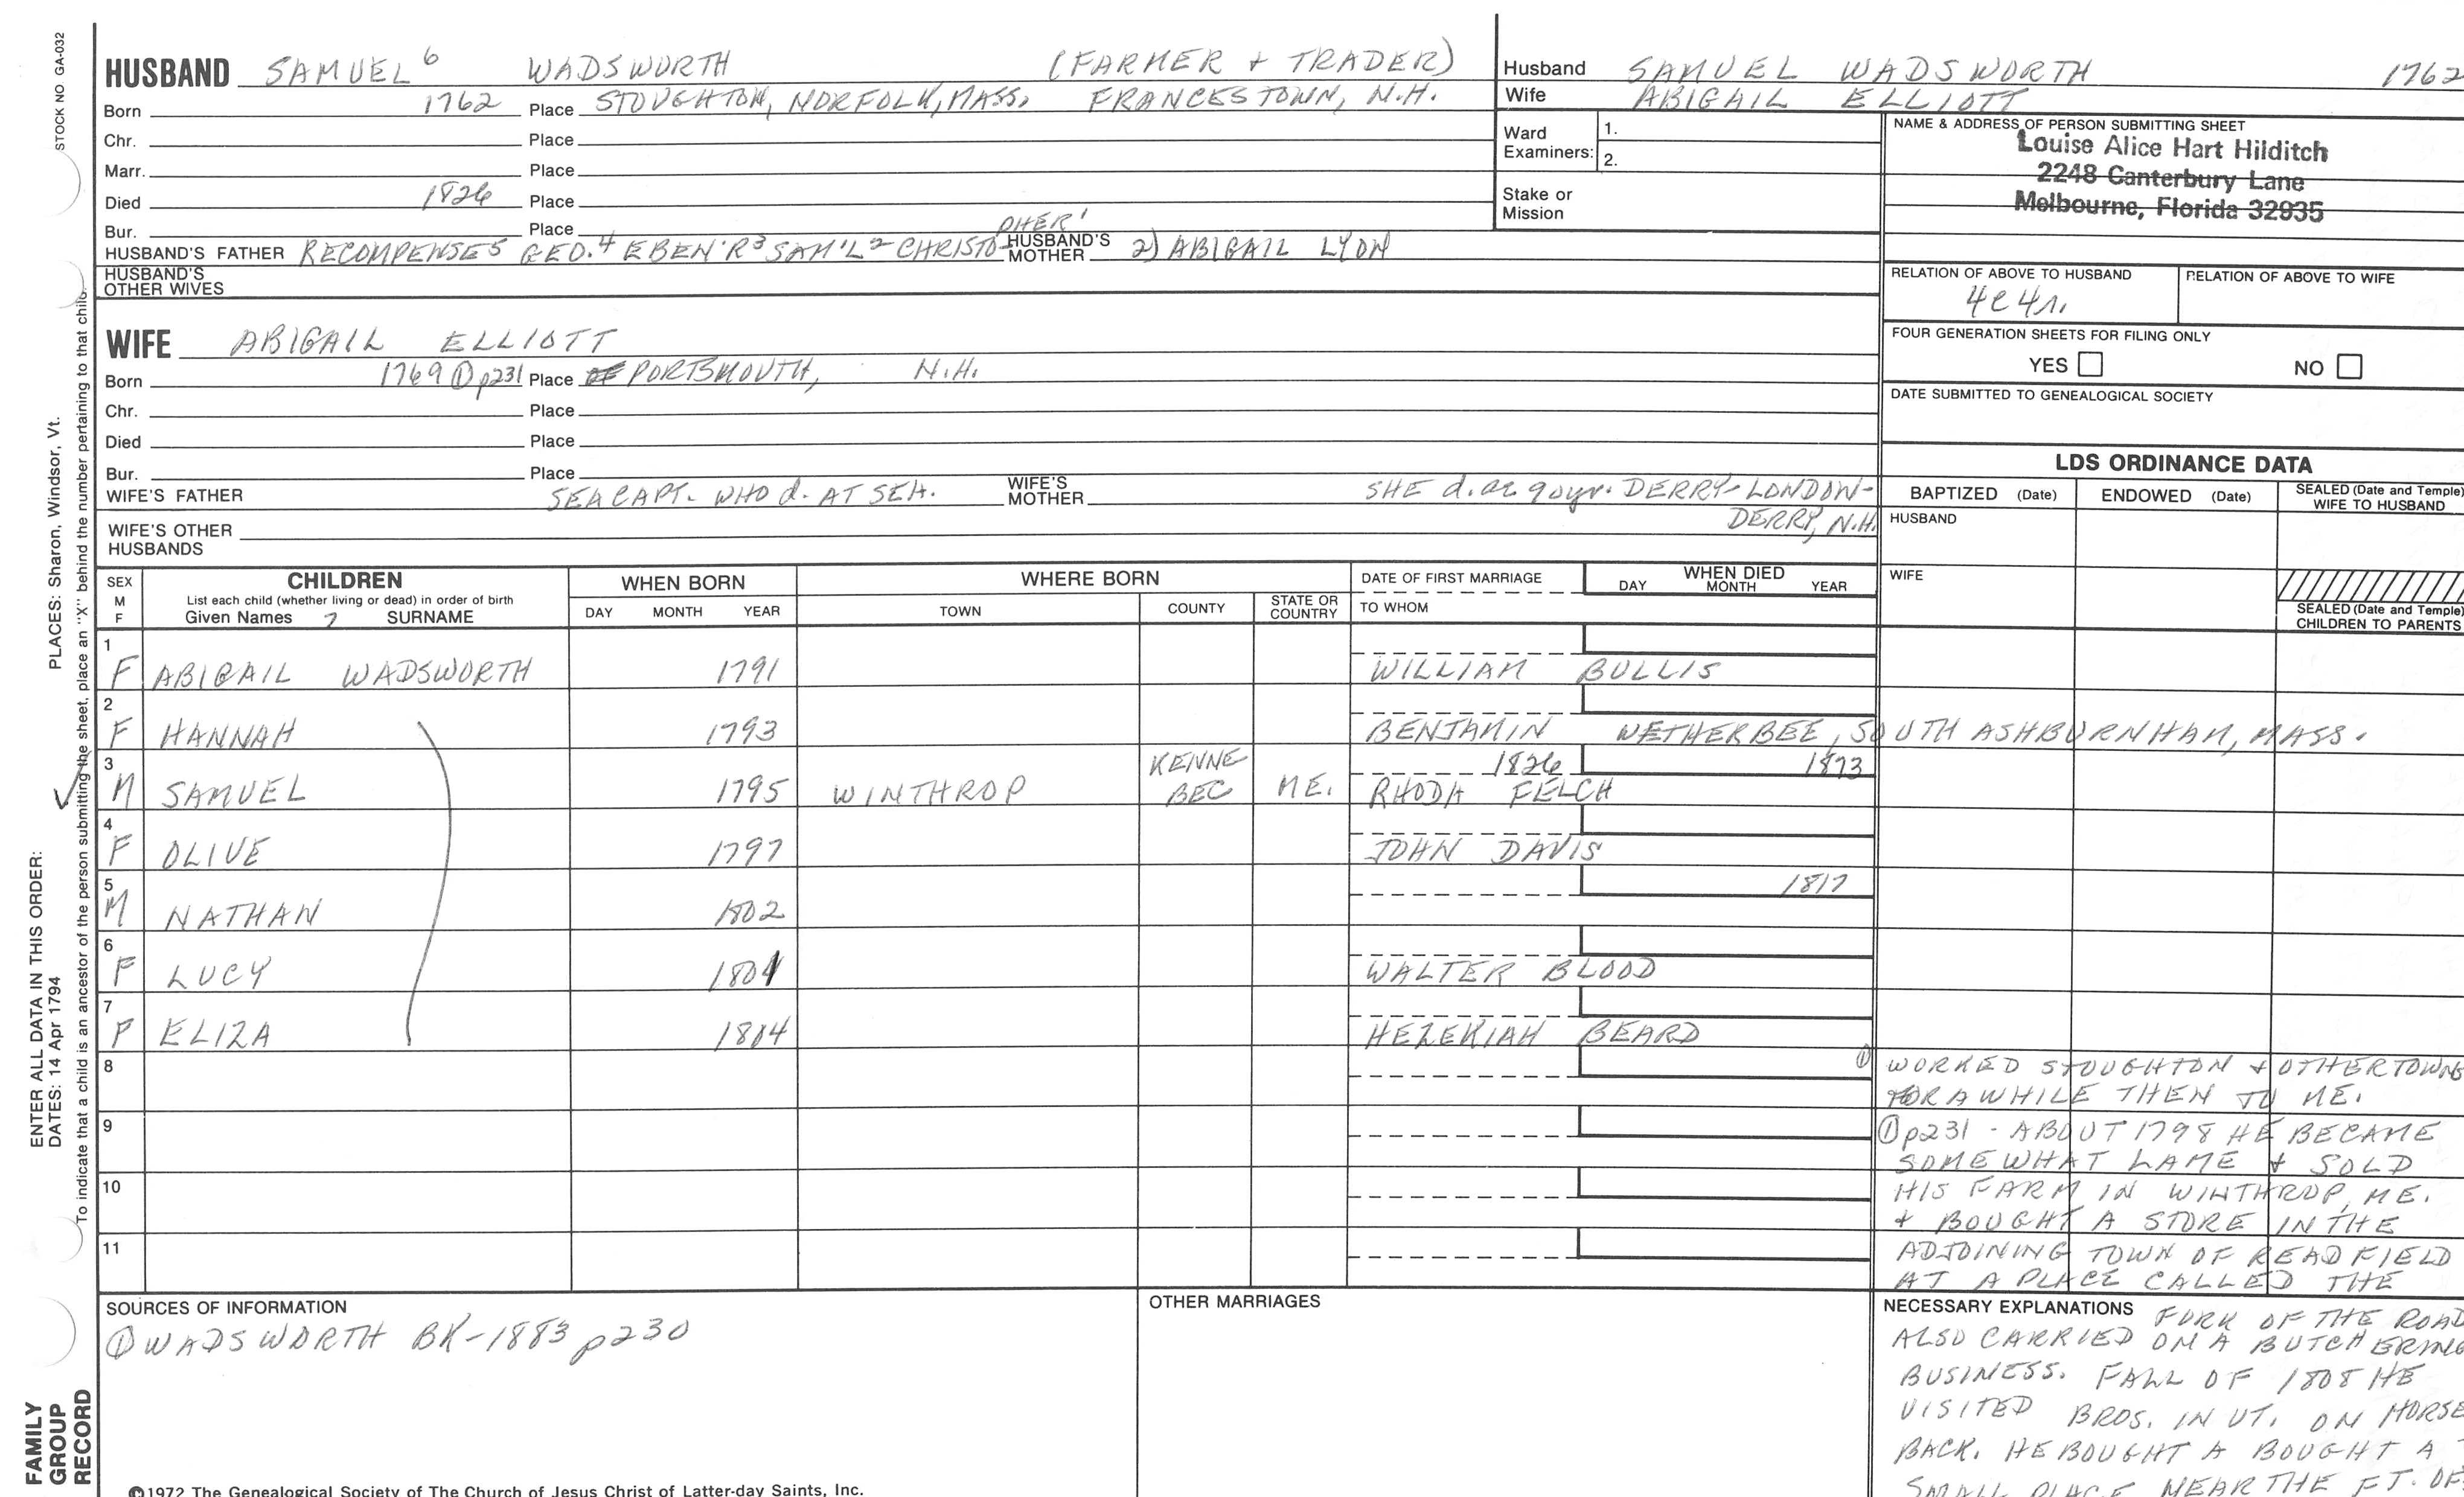 STOCK NO. GA-032
PLACES: Sharon, Windsor, Vt.
ENTER ALL DATA IN THIS ORDER:
DATES: 14 Apr 1794
To indicate that a child is an ancestor of the person submitting the sheet, place an "X" behind the number pertaining to that child.
FAMILY
GROUP
RECORD
HUSBAND SAMUEL 6 WADSWORTH (FARMER + TRADER)
Born 1762 Place STOUGHTON, NORFOLK, MASS. FRANCESTOWN, N.H.
Chr. Place
Marr. Place
Died 1826 Place
Bur. Place
HUSBAND'S FATHER RECOMPENSE 5 GEO. 4 EBEN'R 3 SAM'L 2 CHRISTO- PHER' HUSBAND'S MOTHER 2) ABIGAIL LYON
HUSBAND'S
OTHER WIVES
WIFE ABIGAIL ELLIOTT
Born 1769 ① p231 Place PORTSMOUTH, N.H.
Chr. Place
Died Place
Bur. Place
WIFE'S FATHER SEA CAPT. WHO d. AT SEA. WIFE'S MOTHER SHE d. ae 90yr. DERRY-LONDON-
DERRY, N.H.
WIFE'S OTHER
HUSBANDS
Husband SAMUEL WADSWORTH 1762
Wife ABIGAIL ELLIOTT
Ward
Examiners:
1.
2.
Stake or
Mission
NAME & ADDRESS OF PERSON SUBMITTING SHEET
Louise Alice Hart Hilditch
2248 Canterbury Lane
Melbourne, Florida 32935
RELATION OF ABOVE TO HUSBAND
4c4r.
RELATION OF ABOVE TO WIFE
FOUR GENERATION SHEETS FOR FILING ONLY
YES NO
DATE SUBMITTED TO GENEALOGICAL SOCIETY
LDS ORDINANCE DATA
BAPTIZED (Date) ENDOWED (Date) SEALED (Date and Temple)
WIFE TO HUSBAND
HUSBAND
WIFE
SEALED (Date and Temple)
CHILDREN TO PARENTS
SEX
M
F
CHILDREN
List each child (whether living or dead) in order of birth
Given Names 7 SURNAME
WHEN BORN
DAY MONTH YEAR
WHERE BORN
TOWN COUNTY STATE OR COUNTRY
DATE OF FIRST MARRIAGE
TO WHOM
WHEN DIED
DAY MONTH YEAR
1 F ABIGAIL WADSWORTH 1791 WILLIAM BULLIS
2 F HANNAH 1793 BENJAMIN WETHERBEE, SOUTH ASHBURNHAM, MASS.
3 M SAMUEL 1795 WINTHROP KENNE BEC ME. 1826 RHODA FELCH 1873
4 F OLIVE 1797 JOHN DAVIS
5 M NATHAN 1802 1817
6 F LUCY 1801 WALTER BLOOD
7 F ELIZA 1804 HEZEKIAH BEARD
8
9
10
11
① WORKED STOUGHTON + OTHER TOWNS
FOR AWHILE THEN TO ME.
① p231 - ABOUT 1798 HE BECAME
SOMEWHAT LAME + SOLD
HIS FARM IN WINTHROP, ME.
+ BOUGHT A STORE IN THE
ADJOINING TOWN OF READFIELD
AT A PLACE CALLED THE
NECESSARY EXPLANATIONS FORK OF THE ROAD
ALSO CARRIED ON A BUTCHERING
BUSINESS. FALL OF 1808 HE
VISITED BROS. IN VT. ON HORSE
BACK. HE BOUGHT A BOUGHT A
SMALL PLACE NEAR THE FT. OF
SOURCES OF INFORMATION
① WADSWORTH BK-1883 p230
OTHER MARRIAGES
©1972 The Genealogical Society of The Church of Jesus Christ of Latter-day Saints, Inc.